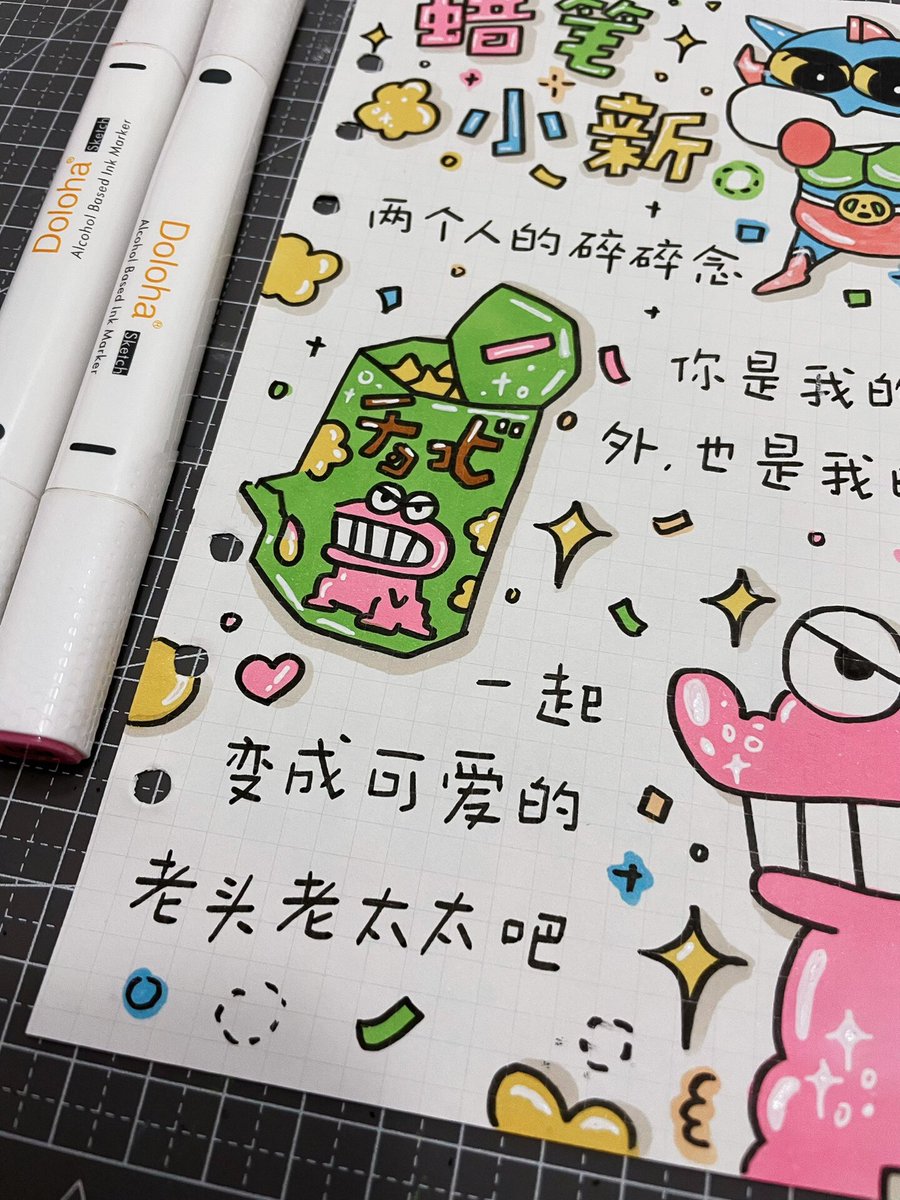 蜡笔
小新
两个人的碎碎念
你是我的
外，也是我
一起
变成可爱的
老头老太太吧
Doloha®
Sketch
Alcohol Based Ink Marker
Doloha®
Sketch
Alcohol Based Ink Marker